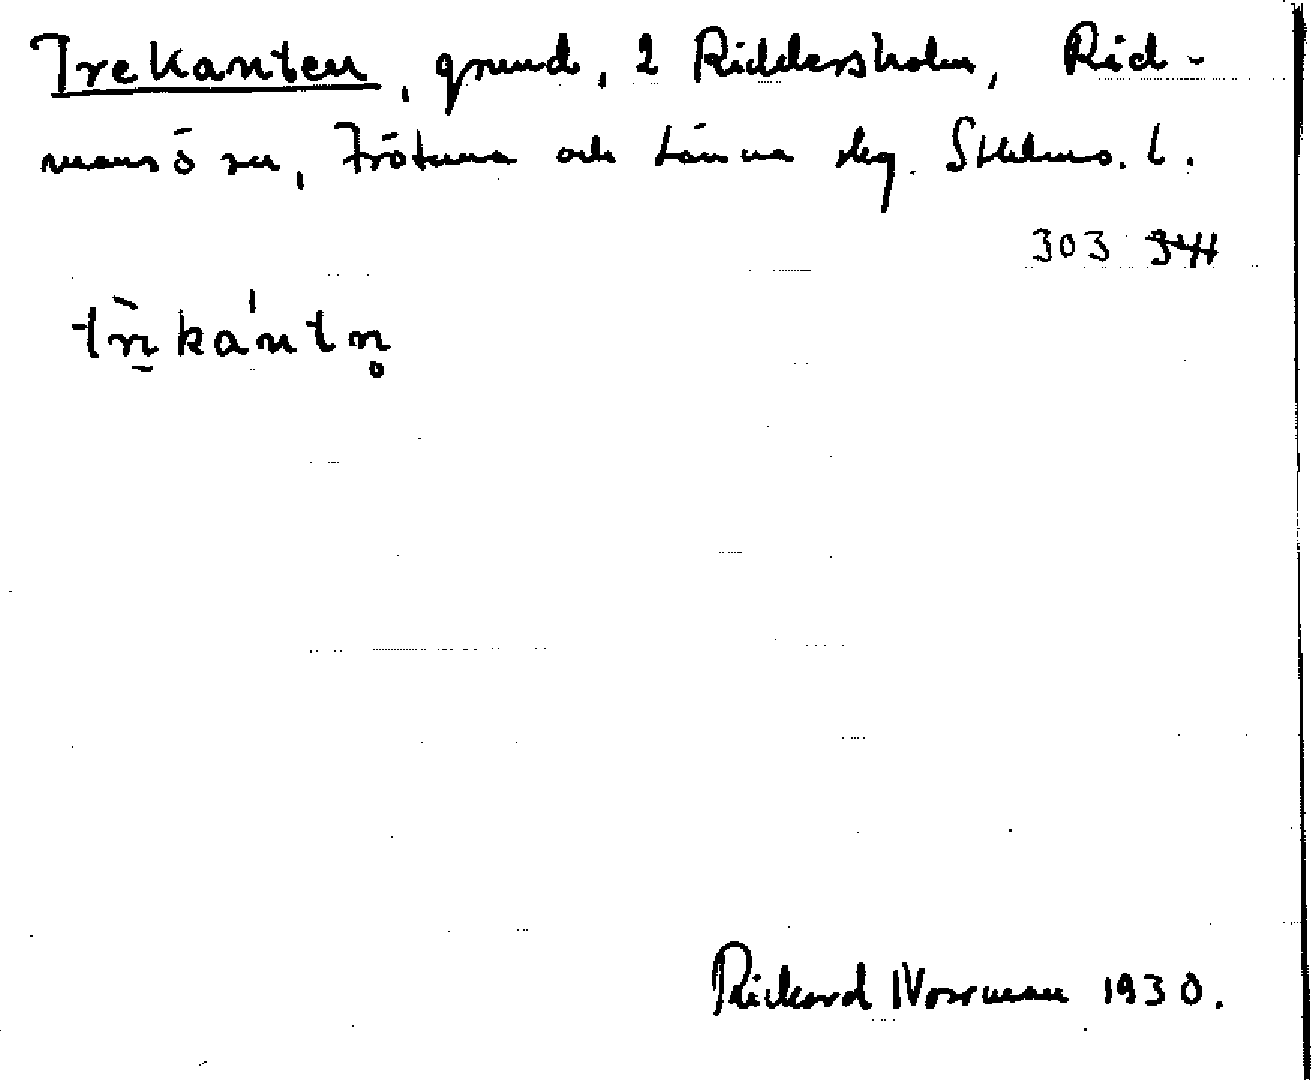 Trekanten, grund, 2 Riddersholm, Rid-
mansö sn, Frötuna och Länna skg. Sthlms. l.
303
trìkántn̥
Rickard Norrman 1930.